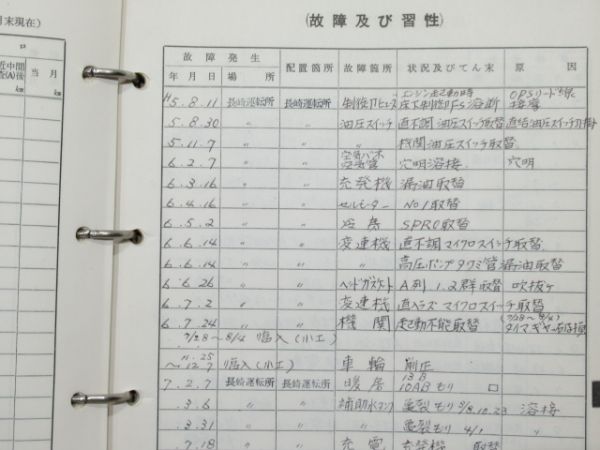 月末現在)
(故障及び習性)
近中間
当月
査(A)後
km
km
故障発生 配置箇所 故障箇所 状況及びてん末 原因
年月日 場所
エンジン起動時 OPSリード線
H5.8.11 長崎運転所 長崎運転所 溶断 接着
5.8.30 〃 〃 油圧スイッチ 直不調 油圧スイッチ取替
5.11.7 〃 〃 機関油圧スイッチ取替
空気バネ
6.2.7 〃 〃 穴明溶接 穴明
6.3.16 〃 〃 充発機 漏油取替
6.4.16 〃 〃 セルモーター No1取替
6.5.2 〃 〃 冷房 SPRC取替
6.6.14 〃 〃 変速機 直不調マイクロスイッチ取替
6.6.14 〃 〃 〃 高圧ポンプタワミ管漏油取替
6.6.26 〃 〃 ヘッドガスケット A列 1.2群取替 吹抜ケ
6.7.2 〃 〃 変速機 直入ラズ マイクロスイッチ取替
6.7.24 〃 〃 機関 起動不能取替 (7/28~8/4)
7/28~8/4 幡入(小工) タイマギヤー
11.25
~12.7 幡入(小工) 車輪 削正
7.2.7 長崎運転所 長崎運転所 暖房 13B
10AB モリ
.3.6 〃 〃 補助水タンク 亀裂モリ 溶接
.3.31 〃 〃 〃 亀裂モリ 4/1 〃
7.18 〃 〃 充電 充発機 取替